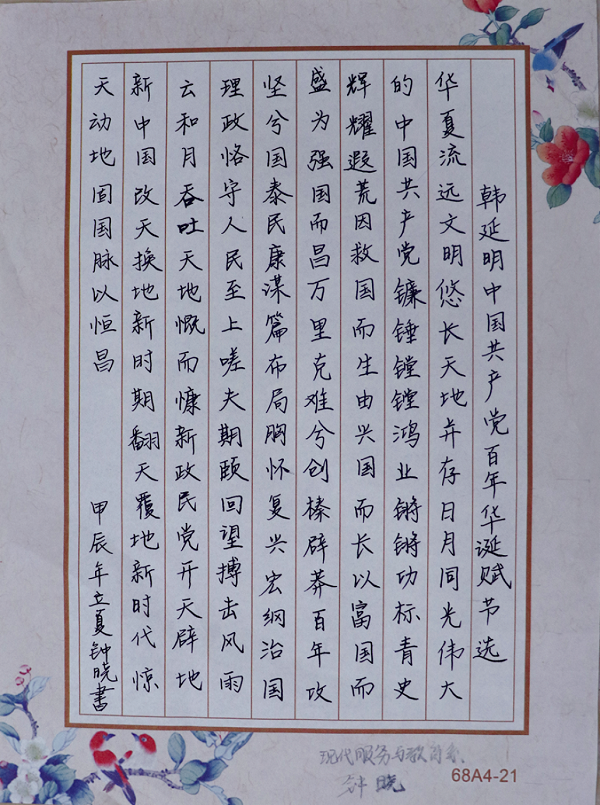 韩延明中国共产党百年华诞赋节选
华夏流远文明悠长天地并存日月同光伟大
的中国共产党镰锤镗镗鸿业锵锵功标青史
辉耀遐荒因救国而生由兴国而长以富国而
盛为强国而昌万里克难兮创榛辟莽百年攻
坚兮国泰民康谋篇布局胸怀复兴宏纲治国
理政恪守人民至上嗟夫期颐回望搏击风雨
云和月吞吐天地慨而慷新政民党开天辟地
新中国改天换地新时期翻天覆地新时代惊
天动地固国脉以恒昌
甲辰年立夏钟晓书
现代服务与教育系
钟晓
68A4-21